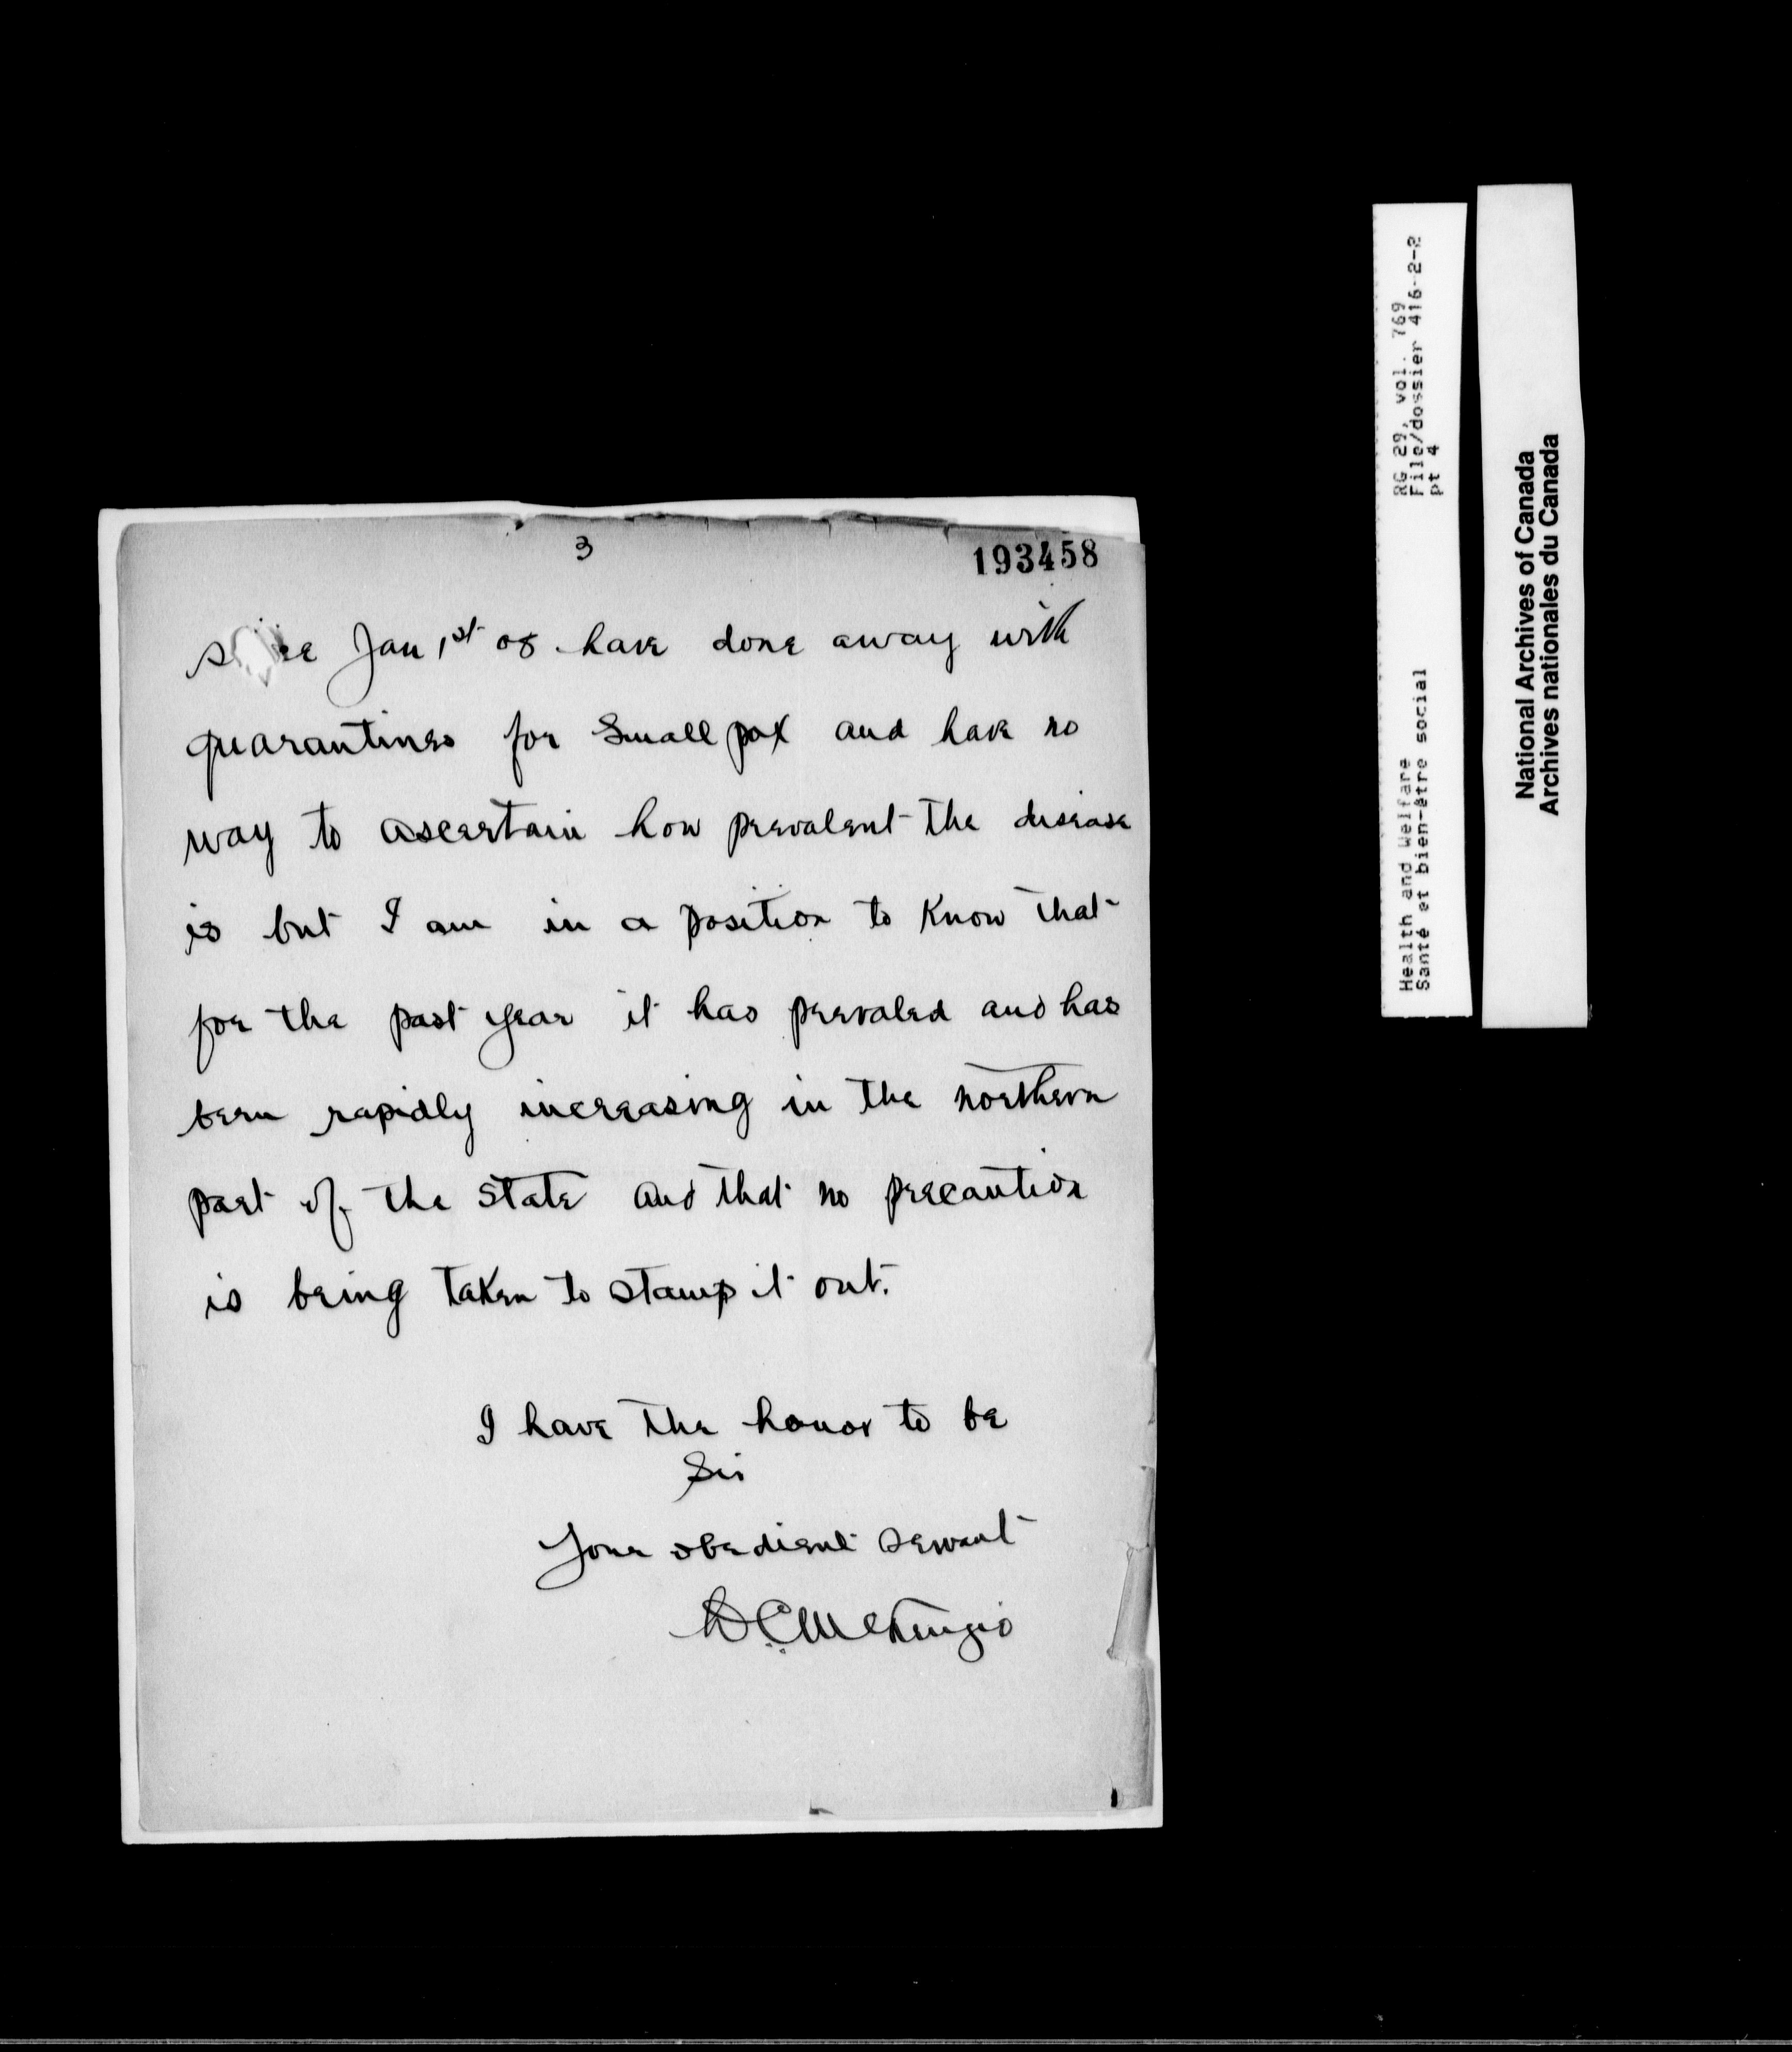 3
193458
since Jan 1st 08 have done away with
quarantines for Small pox and have no
way to ascertain how prevalent the disease
is but I am in a position to Know that
for the past year it has prevaled and has
been rapidly increasing in the northern
part of the State and that no precaution
is being taken to stamp it out.
I have the honor to be
Sir
Your obedient servant
RG 29, vol. 769
File/dossier 416-2-2
pt 4
Health and Welfare
Santé et bien-être social
National Archives of Canada
Archives nationales du Canada